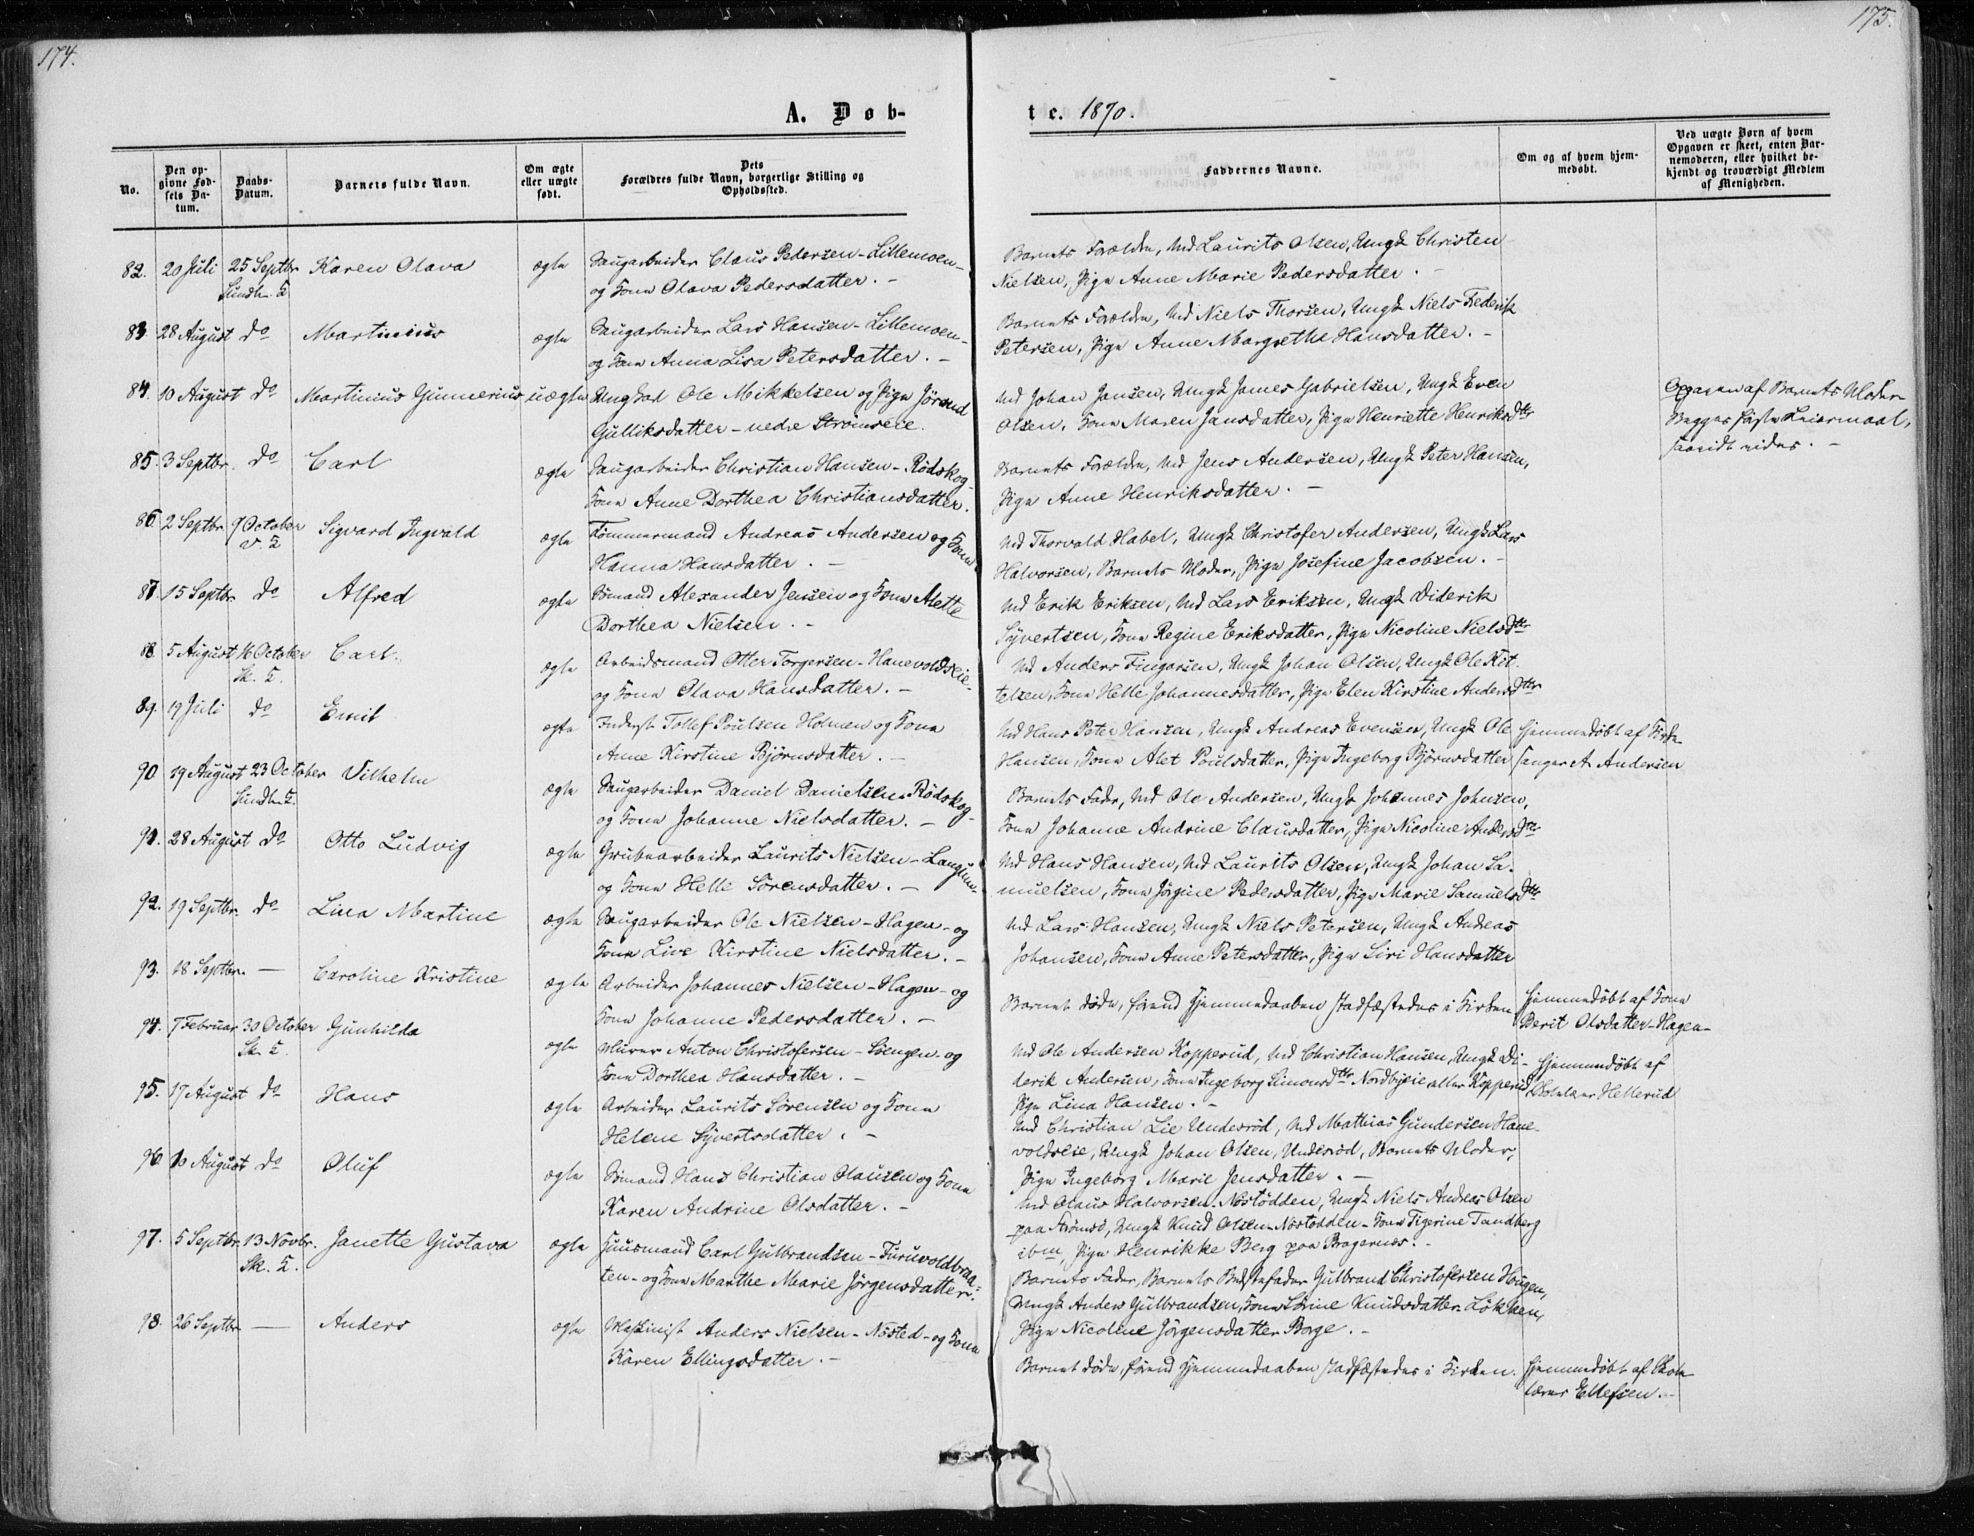 174.
175.
A. Døb-
te. 1870.
No.
Den op-
givne Fød-
sels Da-
tum.
Daabs-
Datum.
Barnets fulde Navn.
Om ægte
eller uægte
født.
Dets
Forældres fulde Navn, borgerlige Stilling og
Opholdssted.
Faddernes Navne.
Om og af hvem hjem-
medøbt.
Ved uægte Børn af hvem
Opgaven er skeet, enten Bar-
nemoderen, eller hvilket be-
kjendt og troværdigt Medlem
af Menigheden.
82. 20 Juli 25 Septbr Karen Olava ægte Saugarbeider Claus Pedersen - Lillemoen -
og Kone Olava Pedersdatter. -
Barnets Forældre, Md Laurits Olsen, Ungk Christen
Nielsen, Pige Anne Marie Pedersdatter. -
83. 28 August do Martinius ægte Saugarbeider Lars Hansen - Lillemoen -
og Kone Anna Lisa Petersdatter. -
Barnets Forældre, Md Niels Thorsen, Ungk Niels Frederik
Petersen, Pige Anne Margrethe Hansdatter. -
84. 10 August do Martinius Gunnerius uægte Ungkarl Ole Mikkelsen og Pige Jörand
Gulliksdatter - nedre Strömseie.
Md Johan Jansen, Ungk James Gabrielsen, Ungk Even
Olsen, Kone Maren Jansdatter, Pige Henriette Henriksdtr
Opgaven af Barnets Moder
Begges første Leiermaal,
saavidt vides. -
85. 3 Septbr. do Carl ægte Saugarbeider Christian Hansen - Rödskog -
Kone Anne Dorthea Christiansdatter.
Barnets Forældre, Md Jens Andersen, Ungk Peter Hansen,
Pige Anne Henriksdatter. -
86. 2 Septbr 9 October Sigvard Ingvald ægte Tömmermand Andreas Andersen og Kone
Hanna Hansdatter. -
Md Thorvald Habel, Ungk Christofer Andersen, Ungk Lars
Halvorsen, Barnets Moder, Pige Josefine Jacobsen. -
87. 15 Septbr. do Alfred ægte Sömand Alexander Jensen og Kone Alette
Dorthea Nielsen. -
Md Erik Eriksen, Md Lars Eriksen, Ungk Diderik
Syvertsen, Kone Regine Eriksdatter, Pige Nicoline Nielsdtr
88. 5 August 16 October Carl. ægte Arbeidsmand Otter Torgersen - Hanevoldseie -
Sk. K.
og Kone Olava Hansdatter. -
Md Anders Fingarsen, Ungk Johan Olsen, Ungk Ole Kit-
telsen, Kone Helle Johannesdatter, Pige Elen Kirstine Andersdtr
89. 19 Juli do Emil ægte Inderst Tollef Poulsen Holmen og Kone
Anne Kirstine Björnsdatter. -
Md Hans Peter Hansen, Ungk Andreas Evensen, Ungk Ole
Hansen, Kone Alet Poulsdatter, Pige Ingeborg Björnsdatter
Hjemmedöbt af Kirke-
sanger A. Andersen
90 19 August 23 October Vilhelm ægte Saugarbeider Daniel Danielsen - Rödskog -
og Kone Johanne Nielsdatter. -
Barnets Fader, Md Ole Andersen, Ungk Johannes Johnsen,
Kone Johanne Andrine Clausdatter, Pige Nicoline Andersdtr
91. 28 August do Otto Ludvig ægte Grubearbeider Laurits Nielsen -
og Kone Helle Sörensdatter. -
Md Hans Hansen, Md Laurits Olsen, Ungk Johan Sa-
muelsen, Kone Jörgine Pedersdatter, Pige Marie Samuelsdtr
92. 19 Septbr. do Lina Martine ægte Saugarbeider Ole Nielsen - Hagen - og
Kone Live Kirstine Nielsdatter. -
Md Lars Hansen, Ungk Niels Petersen, Ungk Andreas
Johansen, Kone Anne Petersdatter, Pige Siri Hansdatter
93. 18 Septbr. - Caroline Kristine ægte Arbeider Johannes Nielsen - Hagen - og
Kone Johanne Pedersdatter. -
Barnet döde, forend Hjemmedaaben stadfæstedes i Kirken
Hjemmedöbt af Kone
Berit Olsdatter - Hagen -
94. 7 Februar 30 October Gunhilda ægte Murer Anton Christofersen - Svengen - og
Sk. K.
Kone Dorthea Hansdatter. -
Md Ole Andersen Kopperud, Md Christian Hansen, Ungk Di-
derik Andersen, Kone Ingeborg Simonsdtr Nordbyeie eller Kopperud
Pige Lina Hansen. -
Hjemmedöbt af
Skolelærer Hellerud
95. 17 August do Hans ægte Arbeider Laurits Sörensen og Kone
Helene Syvertsdatter. -
Md Christian Lie Underöd, Md Mathias Gundersen Hane-
voldseie, Ungk Johan Olsen, Underöd, Barnets Moder,
Pige Ingeborg Marie Jensdatter. -
96 10 August do Oluf ægte Sömand Hans Christian Olausen og Kone
Karen Andrine Olsdatter. -
Md Olaus Halvorsen - Nöstödden, Ungk Niels Andreas Olsen
paa Strömsö, Ungk Knud Olsen - Nöstödden - Kone Tigerine Tandberg
ibm, Pige Henrikke Berg paa Bragernes. -
97. 5 Septbr. 13 Novbr. Janette Gustava ægte Huusmand Carl Gulbrandsen - Furuvoldbraa-
Sk. K.
ten - og Kone Marthe Marie Jörgensdatter. -
Barnets Fader, Barnets Bedstefader Gulbrand Christofersen Haugen,
Ungk Anders Gulbrandsen, Kone Sörine Knudsdatter Lökken,
Pige Nicoline Jörgensdatter Borge. -
98. 26 Septbr. - Anders ægte Maskinist Anders Nielsen - Nösted - og Kone
Karen Ellingsdatter. -
Barnet döde, forend Hjemmedaaben stadfæstedes i Kirken.
Hjemmedöbt af Skole-
lærer Ellefsen. -